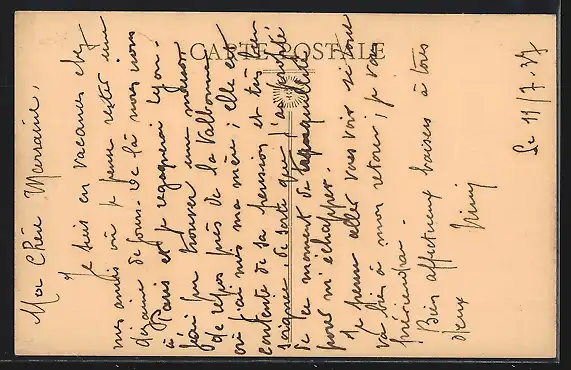 CARTE POSTALE
Le 11/7.37
Ma Chère Marraine,
Je suis en vacances chez
mes amis où je pense rester une
dizaine de jours. De là nous irons
à Paris et je regagnerai Lyon.
J'ai pu trouver une maison
de repos près de la Valbonne
où j'ai mis ma mère ; elle est
contente de sa pension et très bien
soignée de sorte que j'ai profité
de ce moment de tranquillité
pour m'échapper.
Je pense aller vous voir si tout
va bien à mon retour ; je vous
préviendrai.
Bien affectueux baisers à tous
deux